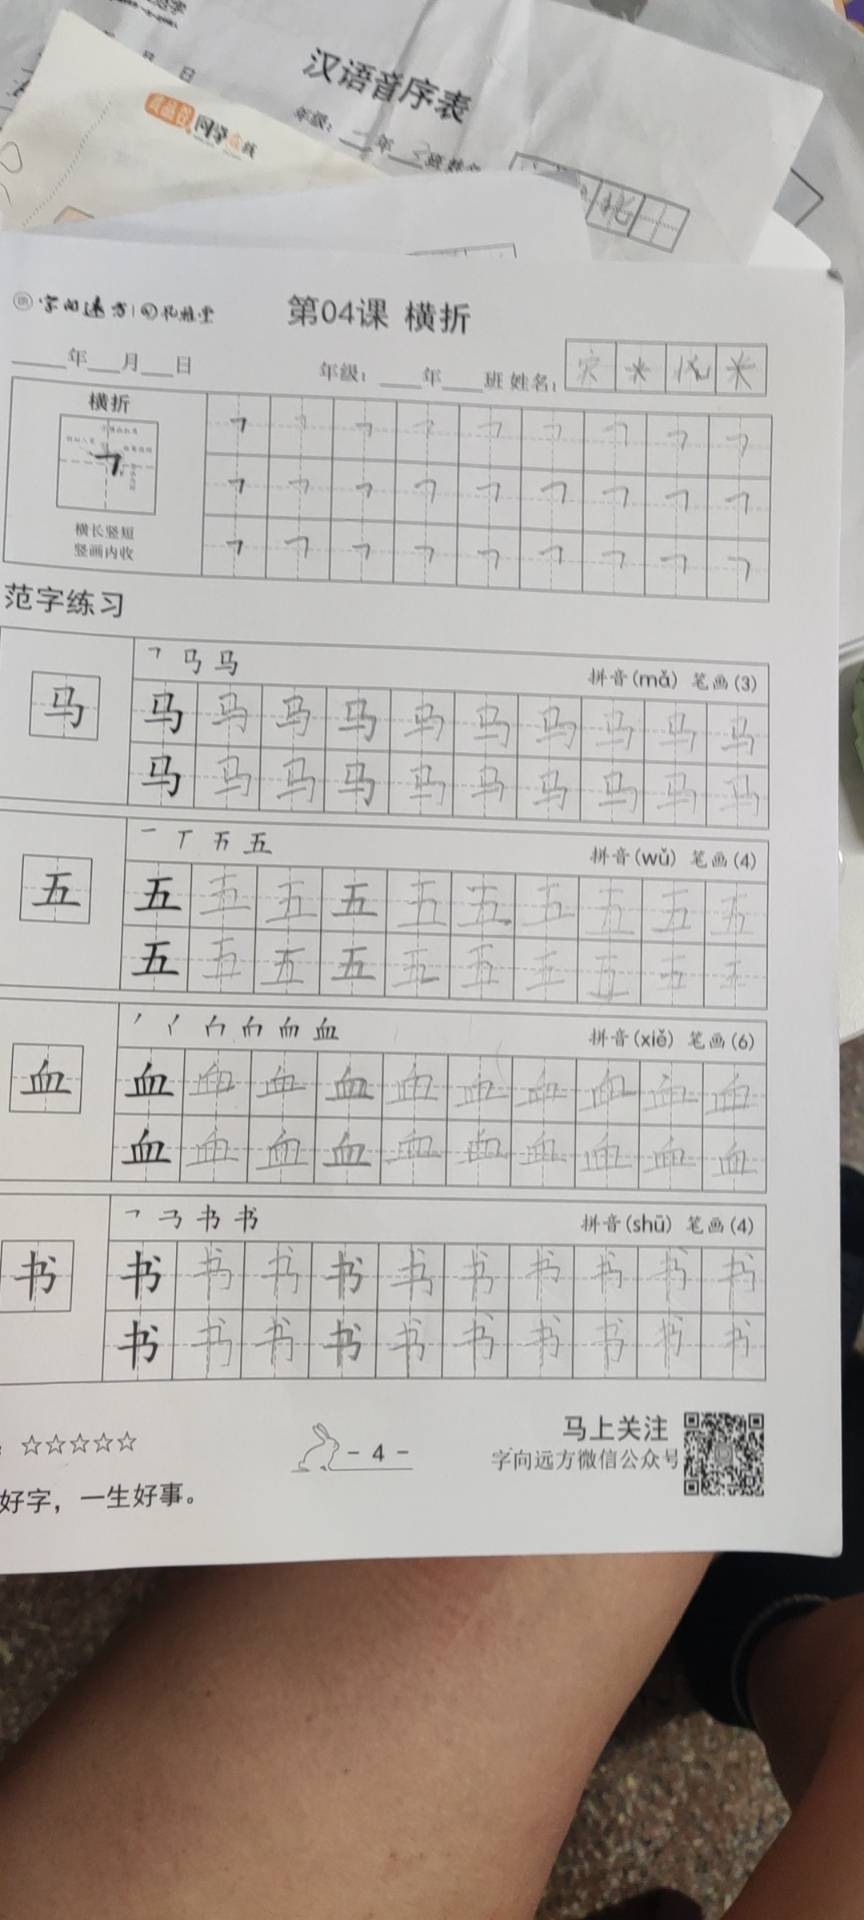 汉语音序表
年级：
年
班
年 月 日
第04课 横折
年级：____年____班 姓名：
横折
横长竖短
竖画内收
范字练习
马 马
拼音(mǎ) 笔画(3)
马 马 马 马 马 马 马 马 马 马 马
马 马 马 马 马 马 马 马 马 马
五
拼音(wǔ) 笔画(4)
五 五 五 五 五 五 五 五 五 五 五
五 五 五 五 五 五 五 五 五 五
血
拼音(xiě) 笔画(6)
血 血 血 血 血 血 血 血 血 血 血
血 血 血 血 血 血 血 血 血 血
书 书
拼音(shū) 笔画(4)
书 书 书 书 书 书 书 书 书 书 书
书 书 书 书 书 书 书 书 书 书
☆☆☆☆☆
- 4 -
马上关注
字向远方微信公众号
好字，一生好事。